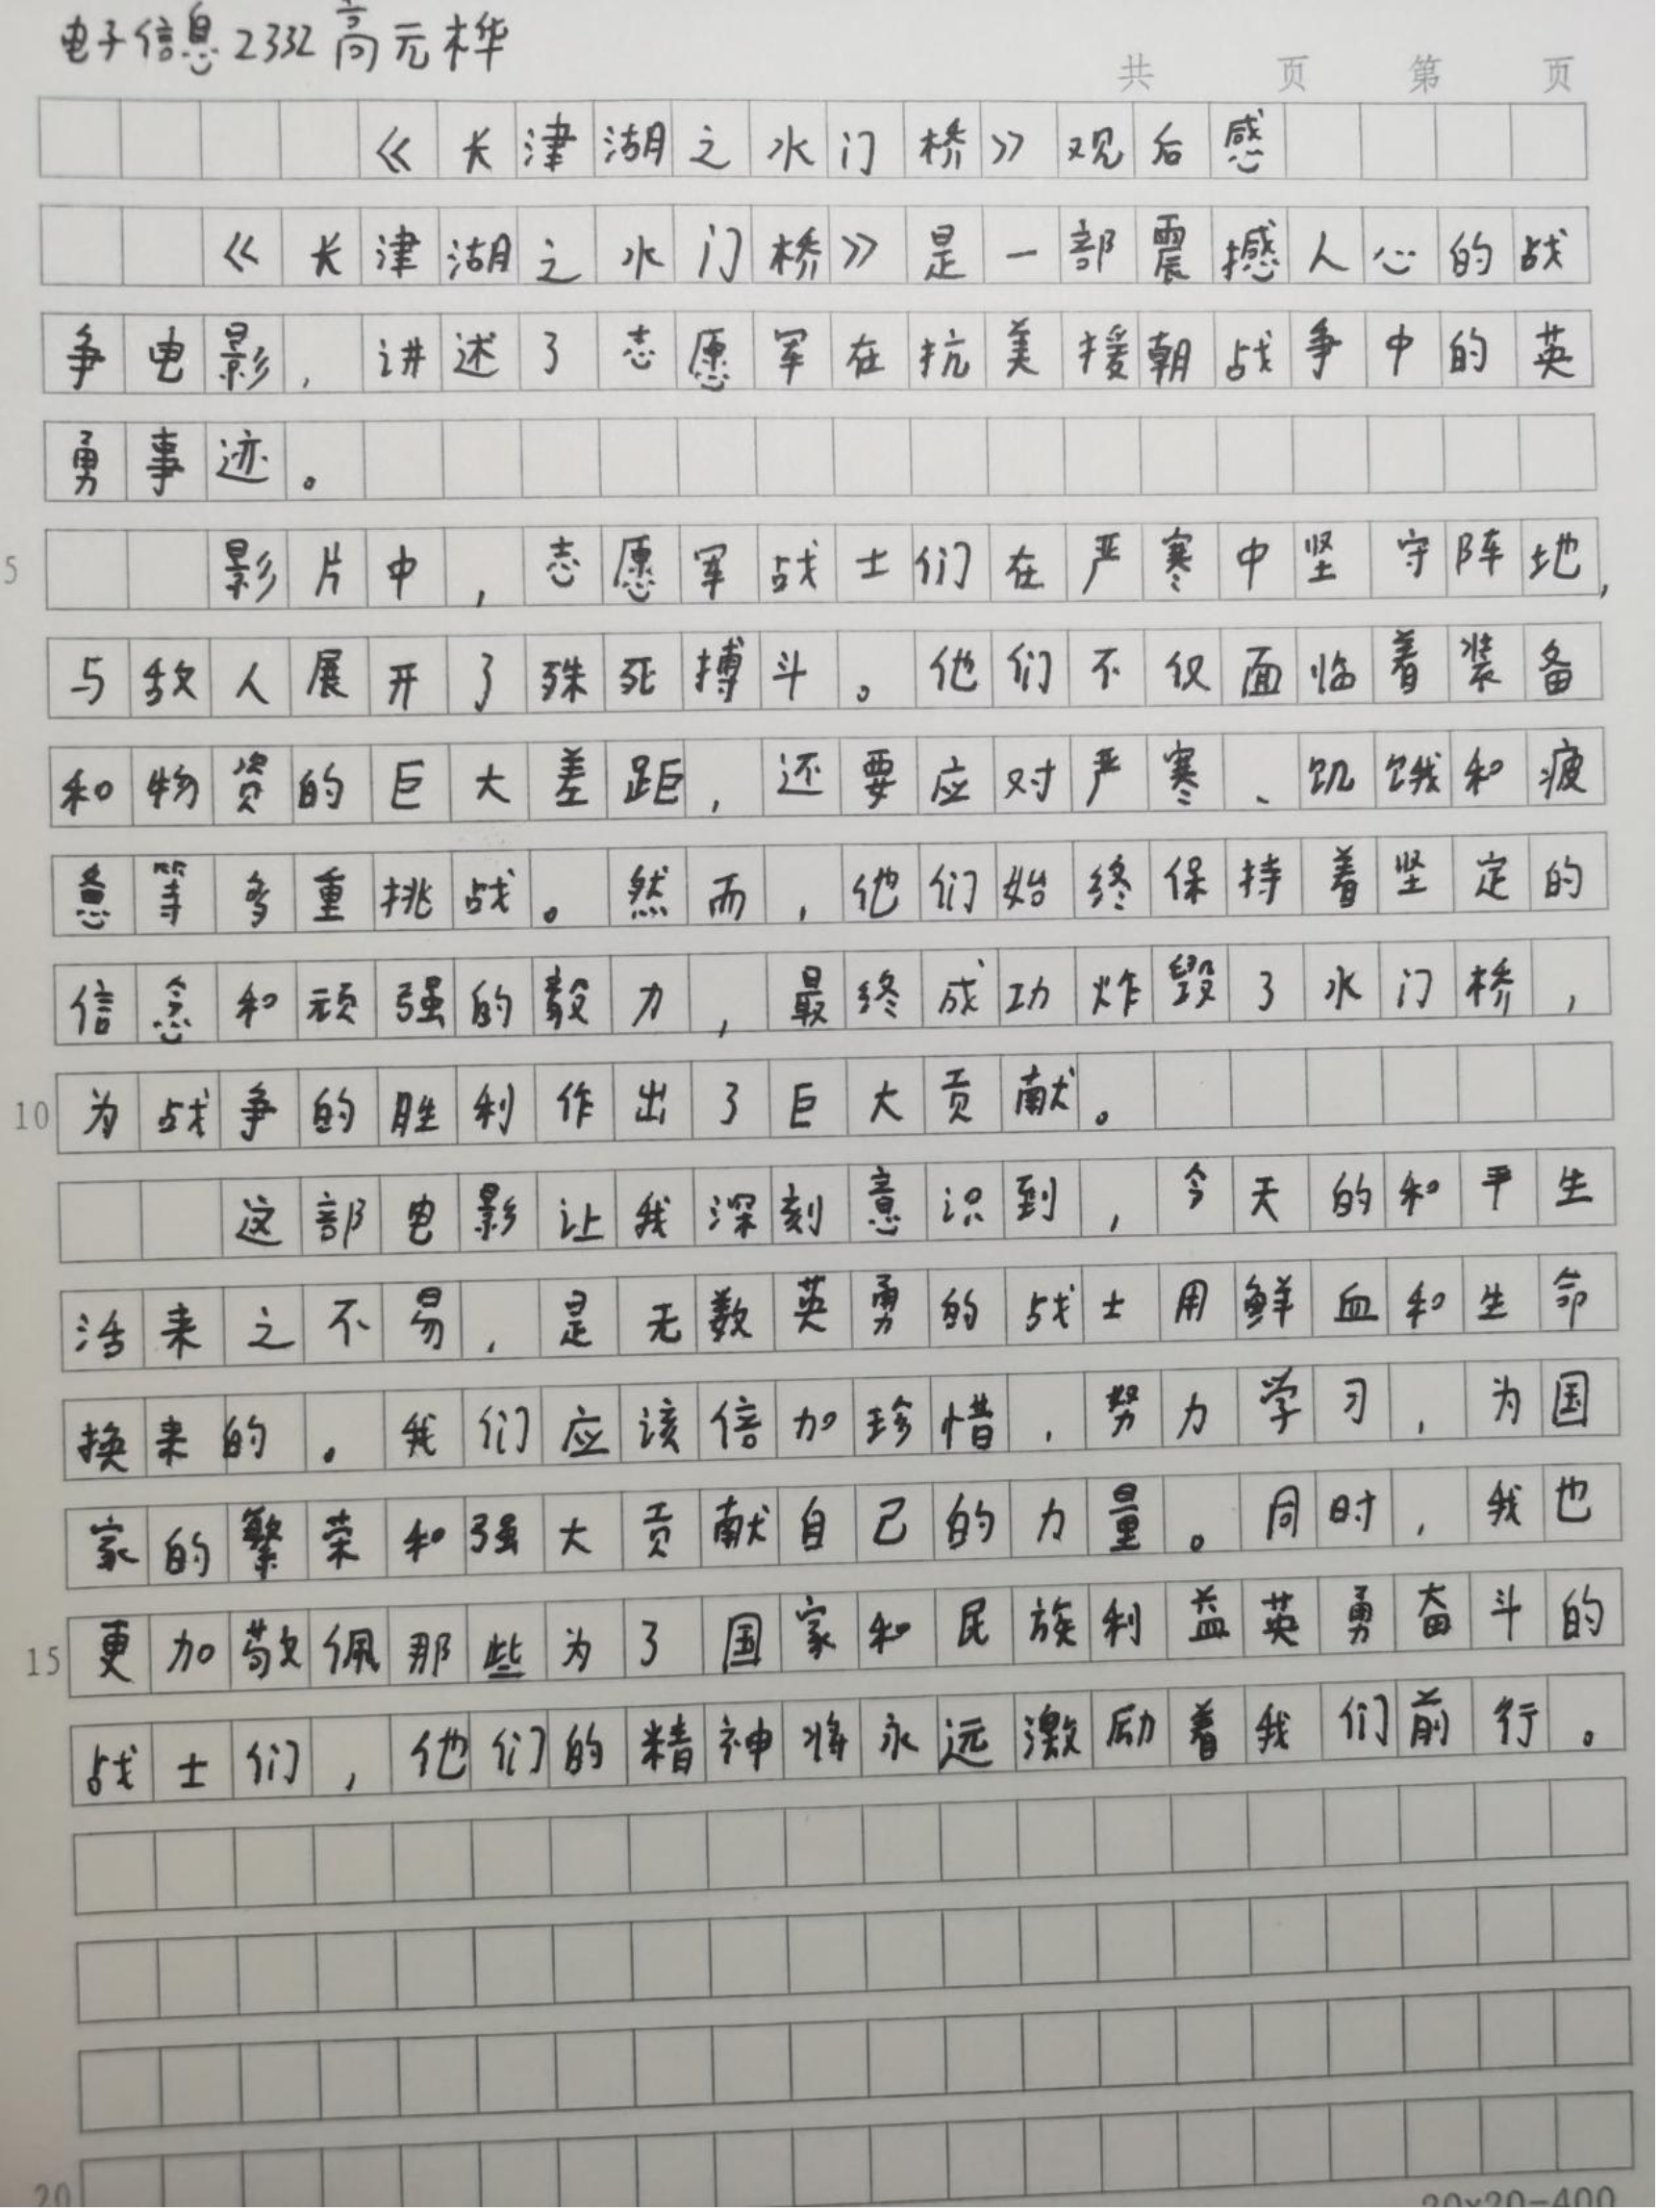 电子信息2332高元桦
共 页 第 页
《长津湖之水门桥》观后感
《长津湖之水门桥》是一部震撼人心的战
争电影，讲述了志愿军在抗美援朝战争中的英
勇事迹。
5 影片中，志愿军战士们在严寒中坚守阵地，
与敌人展开了殊死搏斗。他们不仅面临着装备
和物资的巨大差距，还要应对严寒、饥饿和疲
惫等多重挑战。然而，他们始终保持着坚定的
信念和顽强的毅力，最终成功炸毁了水门桥，
10 为战争的胜利作出了巨大贡献。
这部电影让我深刻意识到，今天的和平生
活来之不易，是无数英勇的战士用鲜血和生命
换来的。我们应该倍加珍惜，努力学习，为国
家的繁荣和强大贡献自己的力量。同时，我也
15 更加敬佩那些为了国家和民族利益英勇奋斗的
战士们，他们的精神将永远激励着我们前行。
20 20×20=400